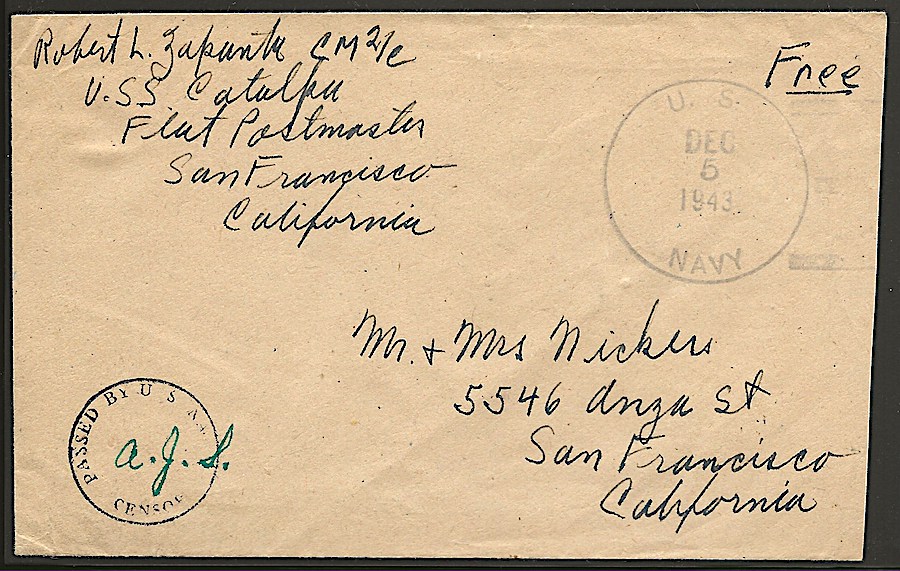 Robert L. Zapanta CM2/c
U.S.S. Catalpa
Fleet Postmaster
San Francisco
California
Free
U. S.
DEC
5
1943
NAVY
Mr. + Mrs Nickers
5546 Anza St
San Francisco
California
PASSED BY U. S. N.
CENSOR
A.J.S.